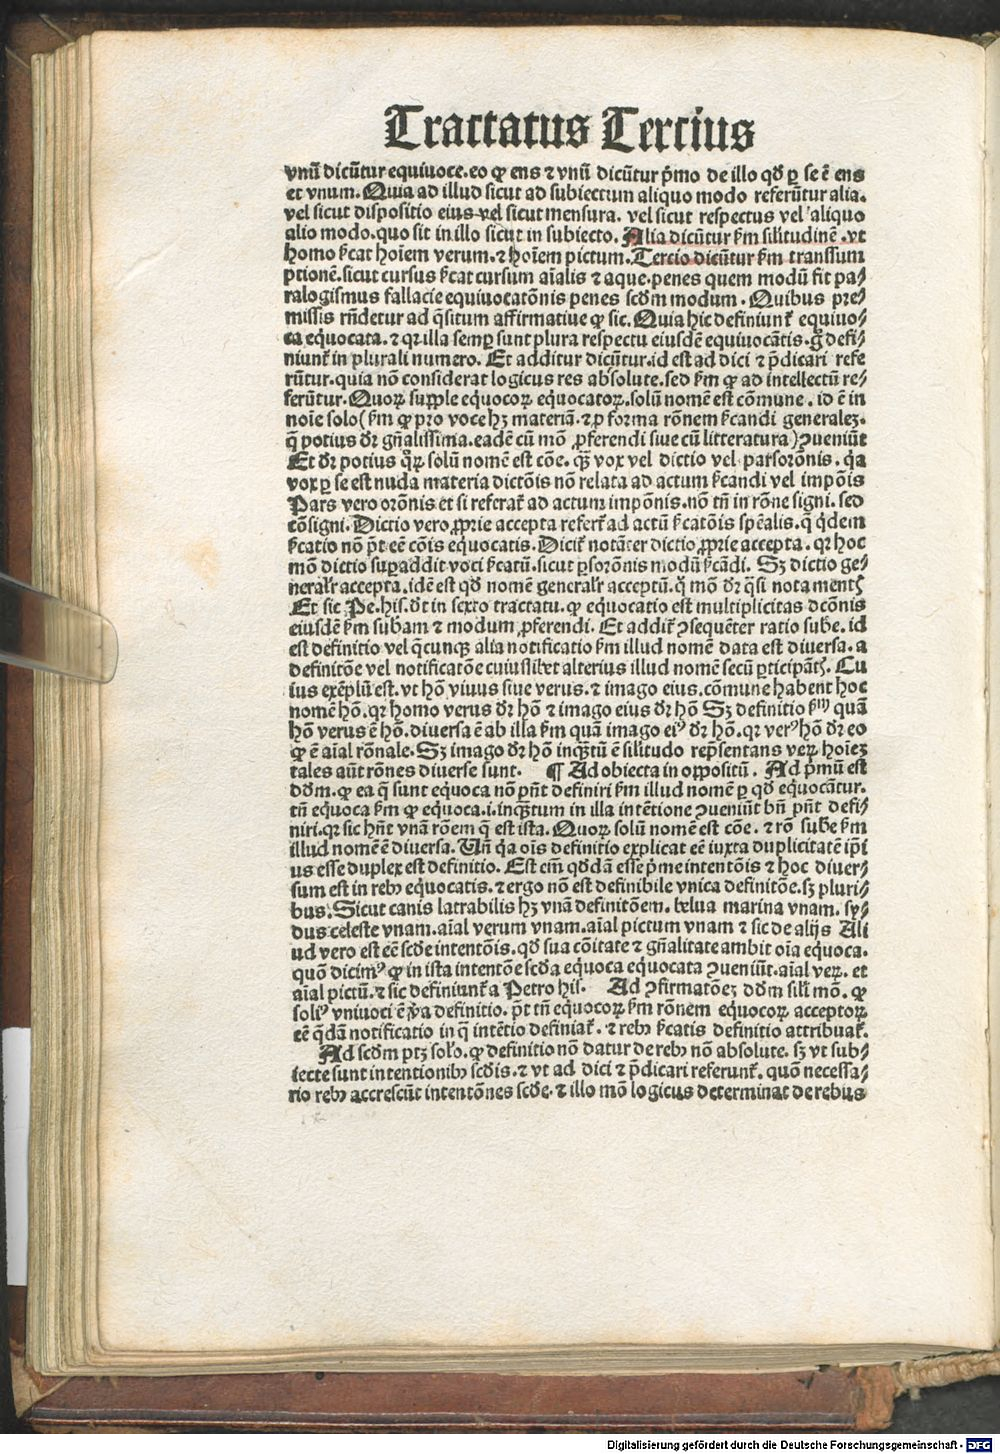 Tractatus Tercius
vnū dicūtur equiuoce. eo ꝙ ens ⁊ vnū dicūtur p̄mo de illo qḋ ꝑ se ē ens
et vnum. Quia ad illud sicut ad subiectum aliquo modo referūtur alia.
vel sicut dispositio eius vel sicut mensura. vel sicut respectus vel aliquo
alio modo. quo sit in illo sicut in subiecto. Alia dicūtur ẜm silitudinē. vt
homo ẜcat hoīem verum. ⁊ hoīem pictum. Tercio dicūtur ẜm transsum
ptionē. sicut cursus ẜcat cursum aīalis ⁊ aque. penes quem modū fit pa⸗
ralogismus fallacie equiuocatōnis penes scd̄m modum. Quibus pre⸗
missis rn̄detur ad q̄situm affirmatiue ꝙ sic. Quia hic definiunt᷑ equiuo⸗
ca eq̇uocata. ⁊ qꝛ illa semꝑ sunt plura respectu eiusdē equiuocātis. g̊ defi⸗
niunt᷑ in plurali numero. Et additur dicūtur. id est ad dici ⁊ p̄dicari refe
rūtur. quia nō considerat logicus res absolute. sed ẜm ꝙ ad intellectū re⸗
ferūtur. Quoꝝ supple equocoꝝ equocatoꝝ. solū nomē est cōmune. id ē in
noīe solo (ẜm ꝙ pro voce hꝫ materiā. ⁊ ꝑ forma rōnem ẜcandi generaleꝫ.
q̄ potius dr̄ gn̄alissima. eadē cū mō ꝓferendi siue cū litteratura) ꝯueniūt
Et dr̄ potius qͦꝝ solū nomē est cōe. qꝫ̄ vox vel dictio vel parsorōnis. q̇a
vox ꝑ se est nuda materia dictōis nō relata ad actum ẜcandi vel impōis
Pars vero orōnis et si referat᷑ ad actum impōnis. nō tn̄ in rōne signi. sed
cōsigni. Dictio vero ꝓprie accepta refert᷑ ad actū ẜcatōis spēalis. q̄ q̇dem
ẜcatio nō p̄t eē cōis eq̇uocatis. Dicit᷑ notāter dictio ꝓprie accepta. qꝛ hoc
mō dictio supaddit voci ẜcatū. sicut ꝑsorōnis modū ẜcādi. Sꝫ dictio ge⸗
neral᷑r accepta. idē est qḋ nomē general᷑r acceptū. q̊ mō dr̄ q̄si notamentꝭ
Et sic Pe. his. dt̄ in sexto tractatu. ꝙ eq̇uocatio est multiplicitas dcōnis
eiusdē ẜm subam ⁊ modum ꝓferendi. Et addit᷑ ꝯsequēter ratio sube. id
est definitio vel q̄cunqꝫ alia notificatio ẜm illud nomē data est diuersa. a
definitōe vel notificatōe cuiuslibet alterius illud nomē secū ꝑticipātꝭ. Cu
ius exēplū est. vt hō viuus siue verus. ⁊ imago eius. cōmune habent hoc
nomē hō. qꝛ homo verus dr̄ hō ⁊ imago eius dr̄ hō Sꝫ definitio ẜm quā
hō verus ē hō. diuersa ē ab illa ẜm quā imago eiꝰ dr̄ hō. qꝛ verꝰ hō dr̄ eo
ꝙ ē aīal rōnale. Sꝫ imago dr̄ hō inqꝫtū ē silitudo repn̄sentans veꝝ hoieꝫ
tales aūt rōnes diuerse sunt. ¶ Ad obiecta in oppositū. Ad p̄mū est
dd̄m. ꝙ ea q̄ sunt equoca nō pn̄t definiri ẜm illud nomē ꝑ qḋ eq̇uocātur.
tn̄ equoca ẜm ꝙ equoca. i. inqꝫtum in illa intētione ꝯueniūt bn̄ pn̄t defi⸗
niri. qꝛ sic hn̄t vnā rōem q̄ est ista. Quoꝝ solū nomē est cōe. ⁊ rō sube ẜm
illud nomē ē diuersa. Un̄ q̇a oīs definitio explicat eē iuxta duplicitatē ip̄i
us esse duplex est definitio. Est em̄ qḋdā esse p̄me intentōis ⁊ hoc diuer⸗
sum est in rebꝫ eq̇uocatis. ⁊ ergo nō est definibile vnica definitōe. sꝫ pluri⸗
bus. Sicut canis latrabilis hꝫ vnā definitōem. belua marina vnam. sy⸗
dus celeste vnam. aīal verum vnam. aīal pictum vnam ⁊ sic de alijs Ali
ud vero est eē scd̄e intentōis. qḋ sua cōitate ⁊ gn̄alitate ambit oīa eq̇uoca.
quō dicimꝰ ꝙ in ista intentōe scd̄a eq̇uoca eq̇uocata ꝯueniūt. aīal veꝝ. et
aīal pictū. ⁊ sic definiunt᷑ a Petro his. Ad ꝯfirmatōeꝫ dd̄m sili mō. ꝙ
soliꝰ vniuoci ē v̇a definitio. p̄t tn̄ equocoꝝ ẜm rōnem eq̇uocoꝝ acceptoꝝ
eē q̇dā notificatio in q̄ intētio definiat᷑. ⁊ rebꝫ ẜcatis definitio attribuat᷑.
Ad scd̄m ptꝫ solo. ꝙ definitio nō datur de rebꝫ nō absolute. sꝫ vt sub⸗
iecte sunt intentionibꝫ scd̄is. ⁊ vt ad dici ⁊ p̄dicari referunt᷑. quō necessa⸗
rio rebꝫ accrescūt intentōnes scd̄e. ⁊ illo mō logicus determinat de rebus
Digitalisierung gefördert durch die Deutsche Forschungsgemeinschaft - DFG